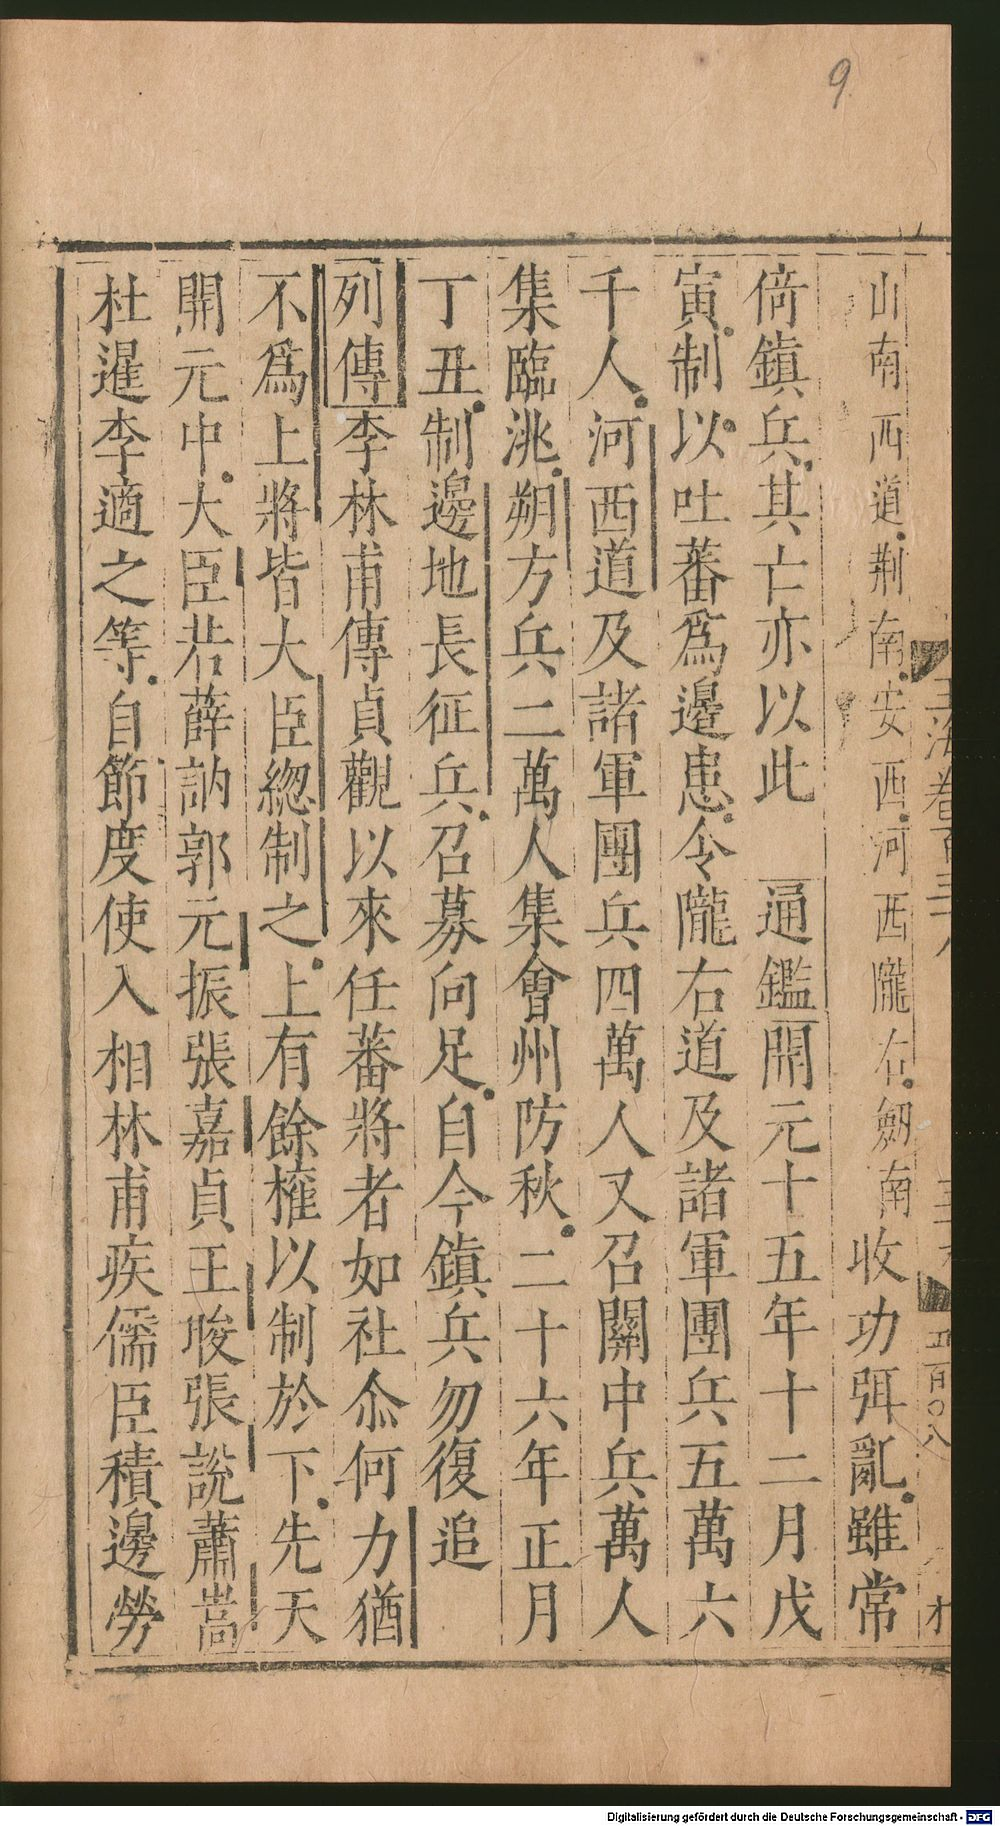 9
山南西道荆南安西河西隴右劒南收功弭亂雖常
倚鎮兵其亡亦以此　通鑑開元十五年十二月戊
寅制以吐蕃爲邊患令隴右道及諸軍團兵五萬六
千人河西道及諸軍團兵四萬人又召關中兵萬人
集臨洮朔方兵二萬人集會州防秋二十六年正月
丁丑制邊地長征兵召募向足自今鎮兵勿復追
列傳李林甫傳貞觀以來任蕃將者如社尒何力猶
不爲上將皆大臣緫制之上有餘權以制於下先天
開元中大臣若薛訥郭元振張嘉貞王晙張說蕭嵩
杜暹李適之等自節度使入相林甫疾儒臣積邊勞
玉海卷百三十八
Digitalisierung gefördert durch die Deutsche Forschungsgemeinschaft - DFG